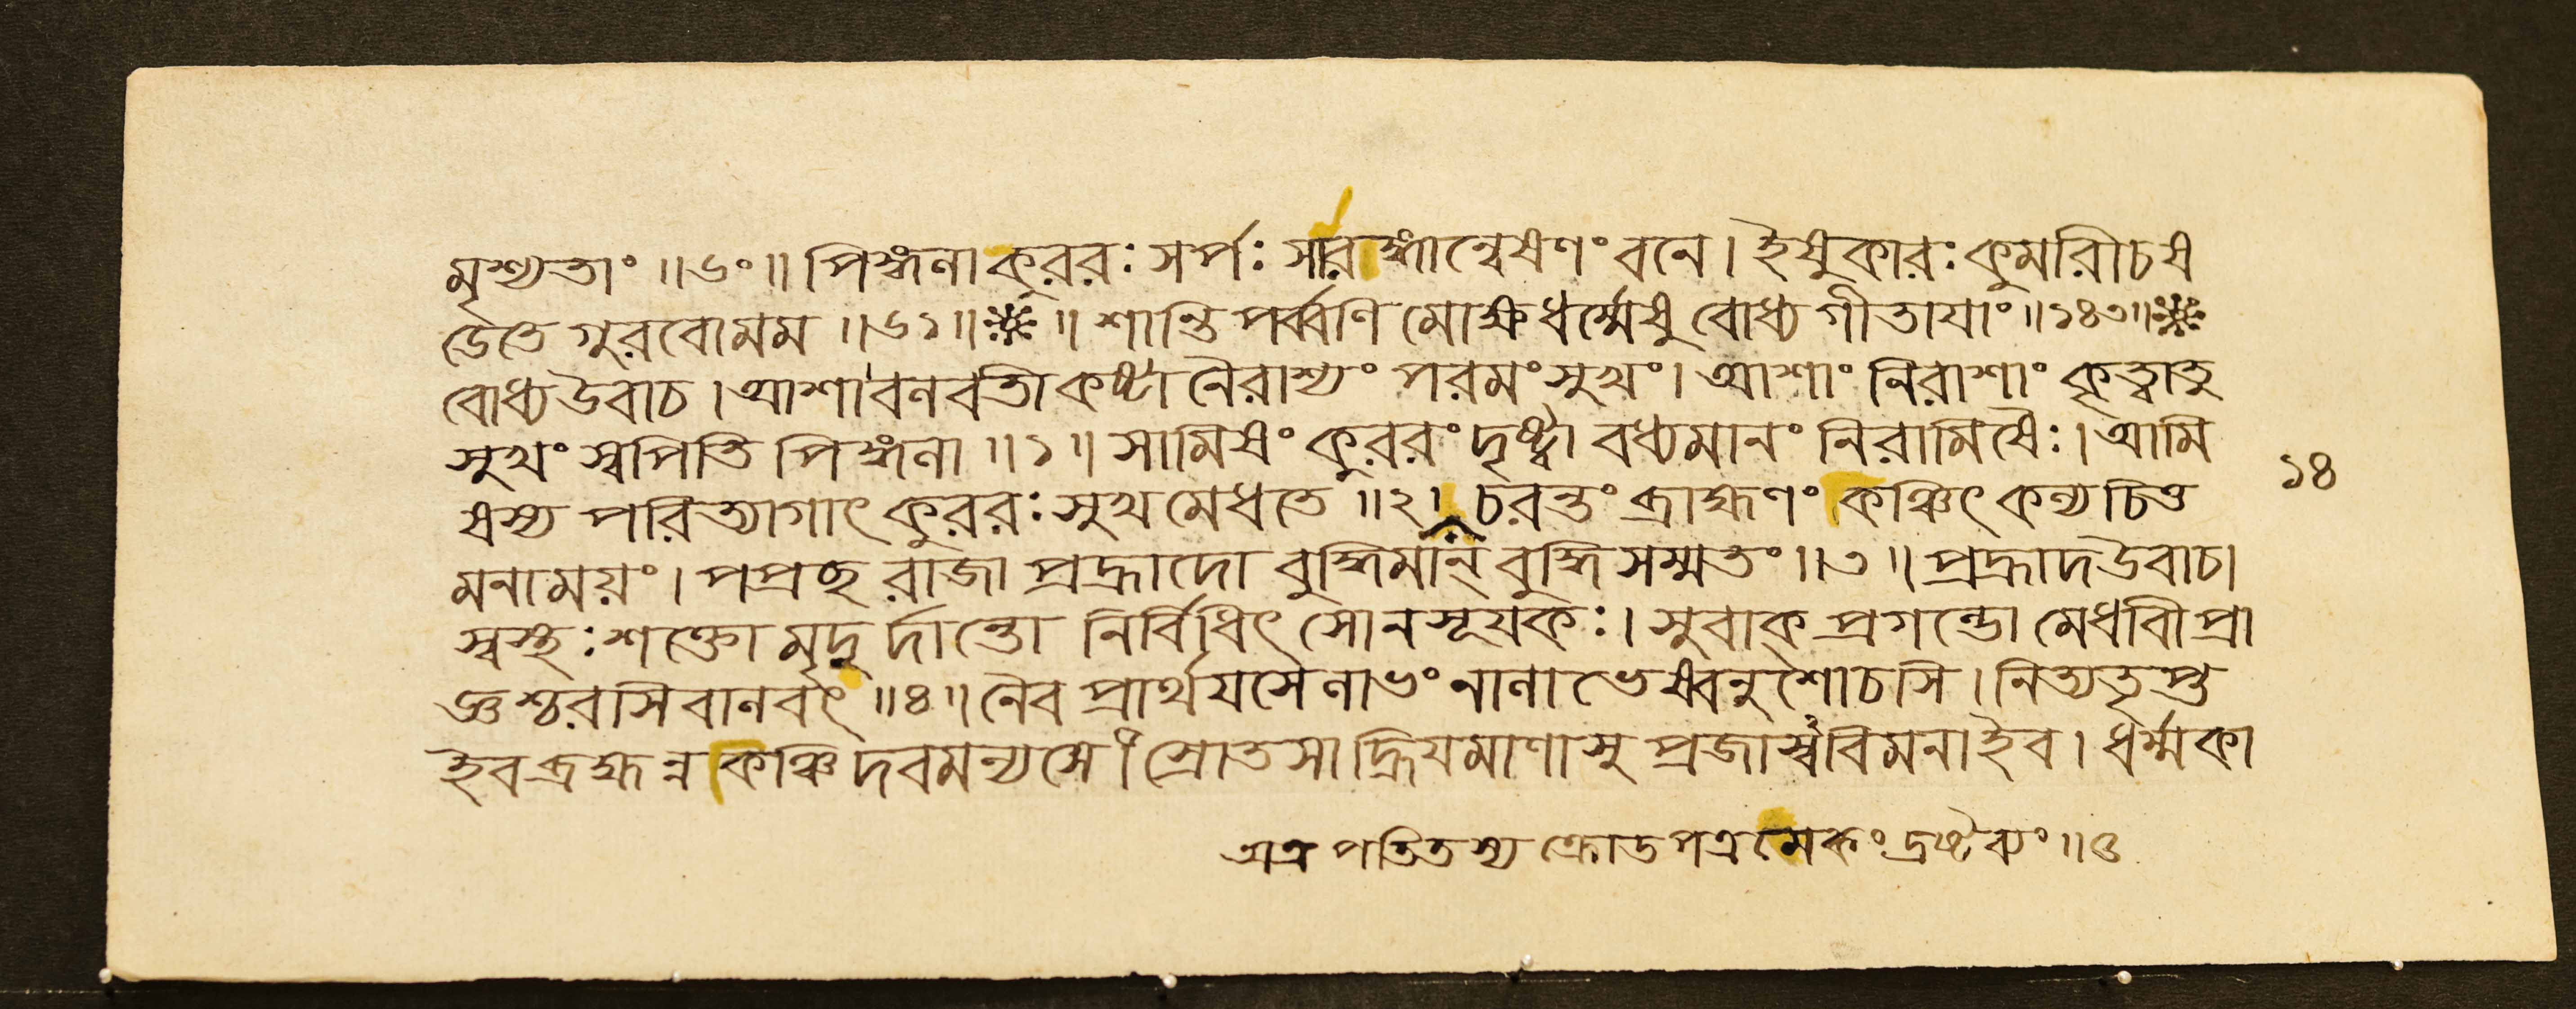 মৃশ্যতাং ॥৬০॥ পিঙ্গলা কুররঃ সর্পঃ সারঙ্গান্বেষণং বনে। ইষুকারঃ কুমারী চ ষ
ডেতে গুরবো মম ॥৬১॥ ॥ শান্তি পর্ব্বণি মোক্ষ ধর্ম্মেষু বোধ্য গীতায়াং ॥১৪৩॥
বোধ্য উবাচ। আশা বলবতী কষ্টা নৈরাশ্যং পরমং সুখং। আশাং নিরাশাং কৃত্বা তু
সুখং স্বপিতি পিঙ্গলা ॥১॥ সামিষং কুররং দৃষ্ট্বা বধ্যমানং নিরামিষৈঃ। আমি
ষস্য পরিত্যাগাৎ কুররঃ সুখমেধতে ॥২॥ চরন্তং ব্রাহ্মণং কঞ্চিৎ কল্যচিত্ত
মনাময়ং। পপ্রচ্ছ রাজা প্রহ্লাদো বুদ্ধিমান্ বুদ্ধিসম্মতং ॥৩॥ প্রহ্লাদ উবাচ।
স্বস্থঃ শক্তো মৃদুর্দান্তো নির্বিধিৎসোনসূয়কঃ। সুবাক্ প্রগল্ভো মেধাবী প্রা
জ্ঞশ্চরসি বালবৎ ॥৪॥ নৈব প্রার্থয়সে লাভং নালাভেষ্বনুশোচসি। নিত্যতৃপ্ত
ইব ব্রহ্মন্ন কিঞ্চিদবমন্যসে। স্রোতসা হ্রিয়মাণাসু প্রজাস্ববিমনা ইব। ধর্ম্মকা
১৪
অত্র পতিতস্য ক্রোড পত্রমেকং দ্রষ্টব্যং ॥